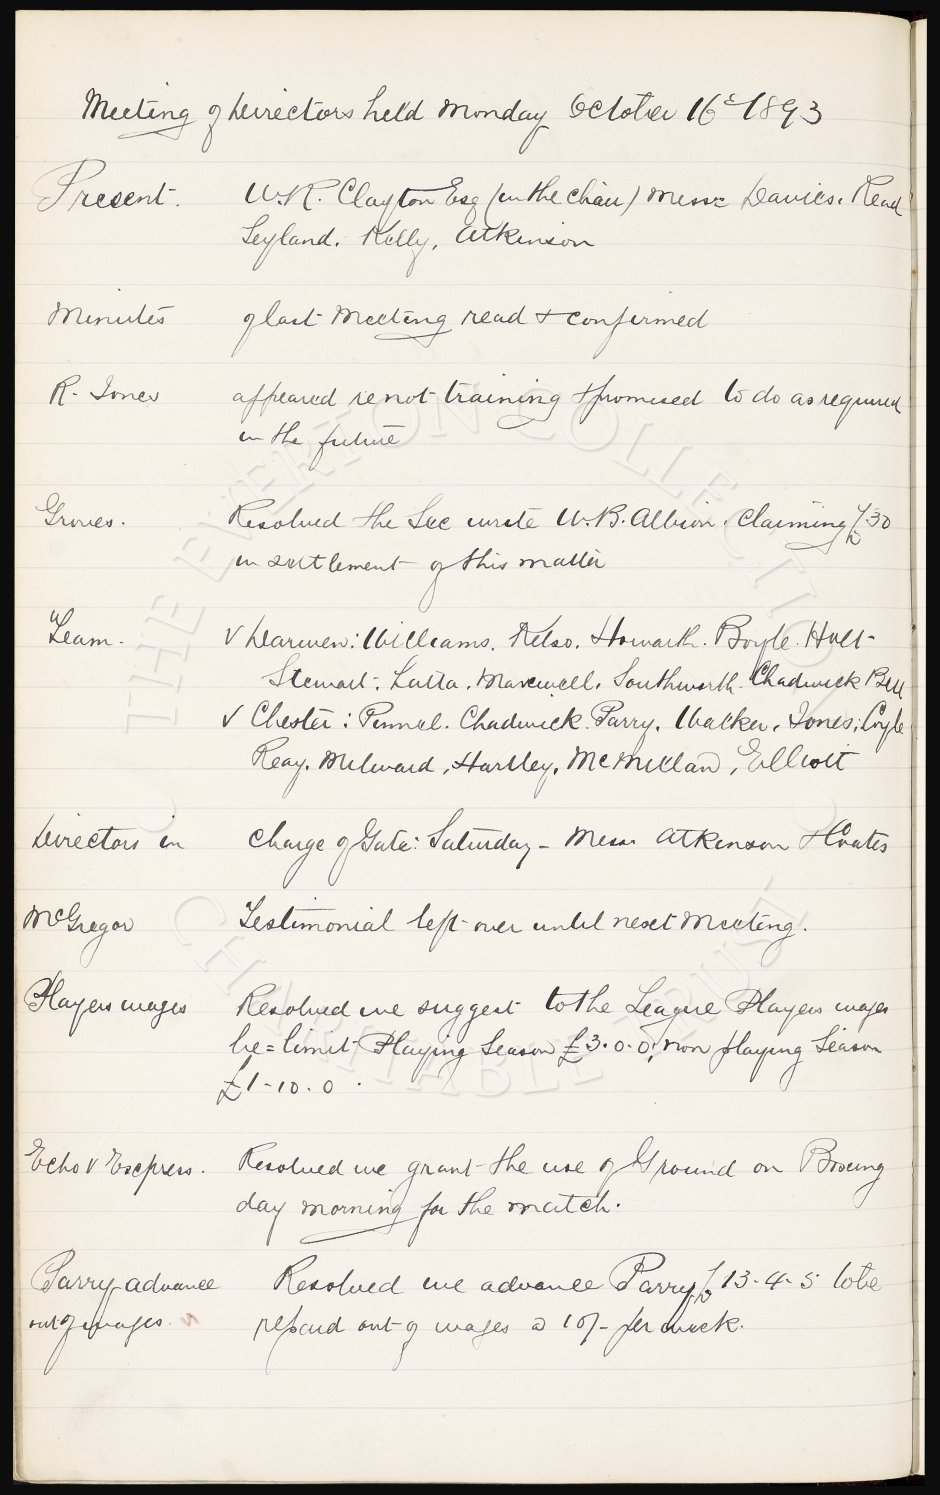 Meeting of Directors held Monday October 16th 1893
Present. W.R. Clayton Esq (in the chair) Messrs Davies. Read
Leyland. Kelly. Atkinson
Minutes of last Meeting read & confirmed
R. Jones appeared re not training & promised to do as required
in the future
Groves. Resolved the Sec write W.B. Albion claiming £30
in settlement of this matter
Team. V Darwen: Williams. Kelso. Howarth. Boyle. Holt
Stewart. Latta. Maxwell. Southworth. Chadwick Bell
V Chester: Pinnel. Chadwick. Parry. Walker. Jones. Coyle
Reay. Milward, Hartley, McMillan, Elliott
Directors in charge of Gate: Saturday - Messrs Atkinson & Coates
McGregor Testimonial left over until next Meeting.
Players wages Resolved we suggest to the League Players wages
be = limit Playing Season £3.0.0, non playing Season
£1-10.0.
Echo v Express. Resolved we grant the use of Ground on Boxing
day morning for the match.
Parry advance Resolved we advance Parry £13-4-5 to be
out of wages. repaid out of wages @ 10/- per week.
THE EVERTON COLLECTION
CHARITABLE TRUST